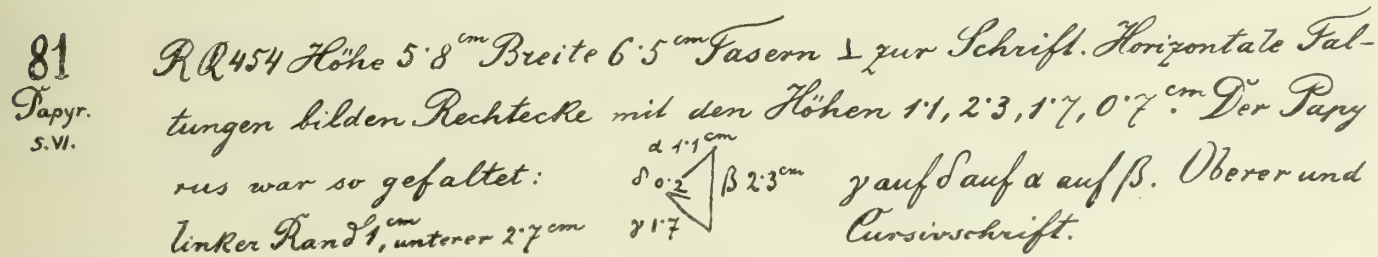 81 R Q 454 Höhe 5·8 cm Breite 6·5 cm Fasern ⊥ zur Schrift. Horizontale Fal-
Papyr. tungen bilden Rechtecke mit den Höhen 1·1, 2·3, 1·7, 0·7 cm. Der Papy
S. VI.
rus war so gefaltet: α 1·1 cm δ 0·2 β 2·3 cm γ auf δ auf α auf β. Oberer und
linker Rand 1 cm, unterer 2·7 cm γ 1·7 Cursivschrift.